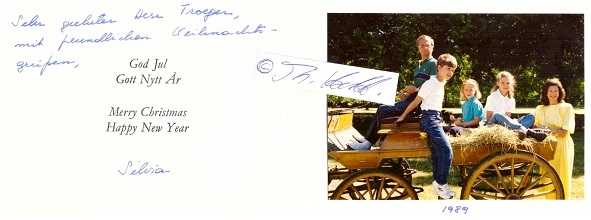 Sehr geehrter Herr Troeger,
mit freundlichen Weihnachts-
grüßen,
God Jul
Gott Nytt År
Merry Christmas
Happy New Year
Silvia
©
1989